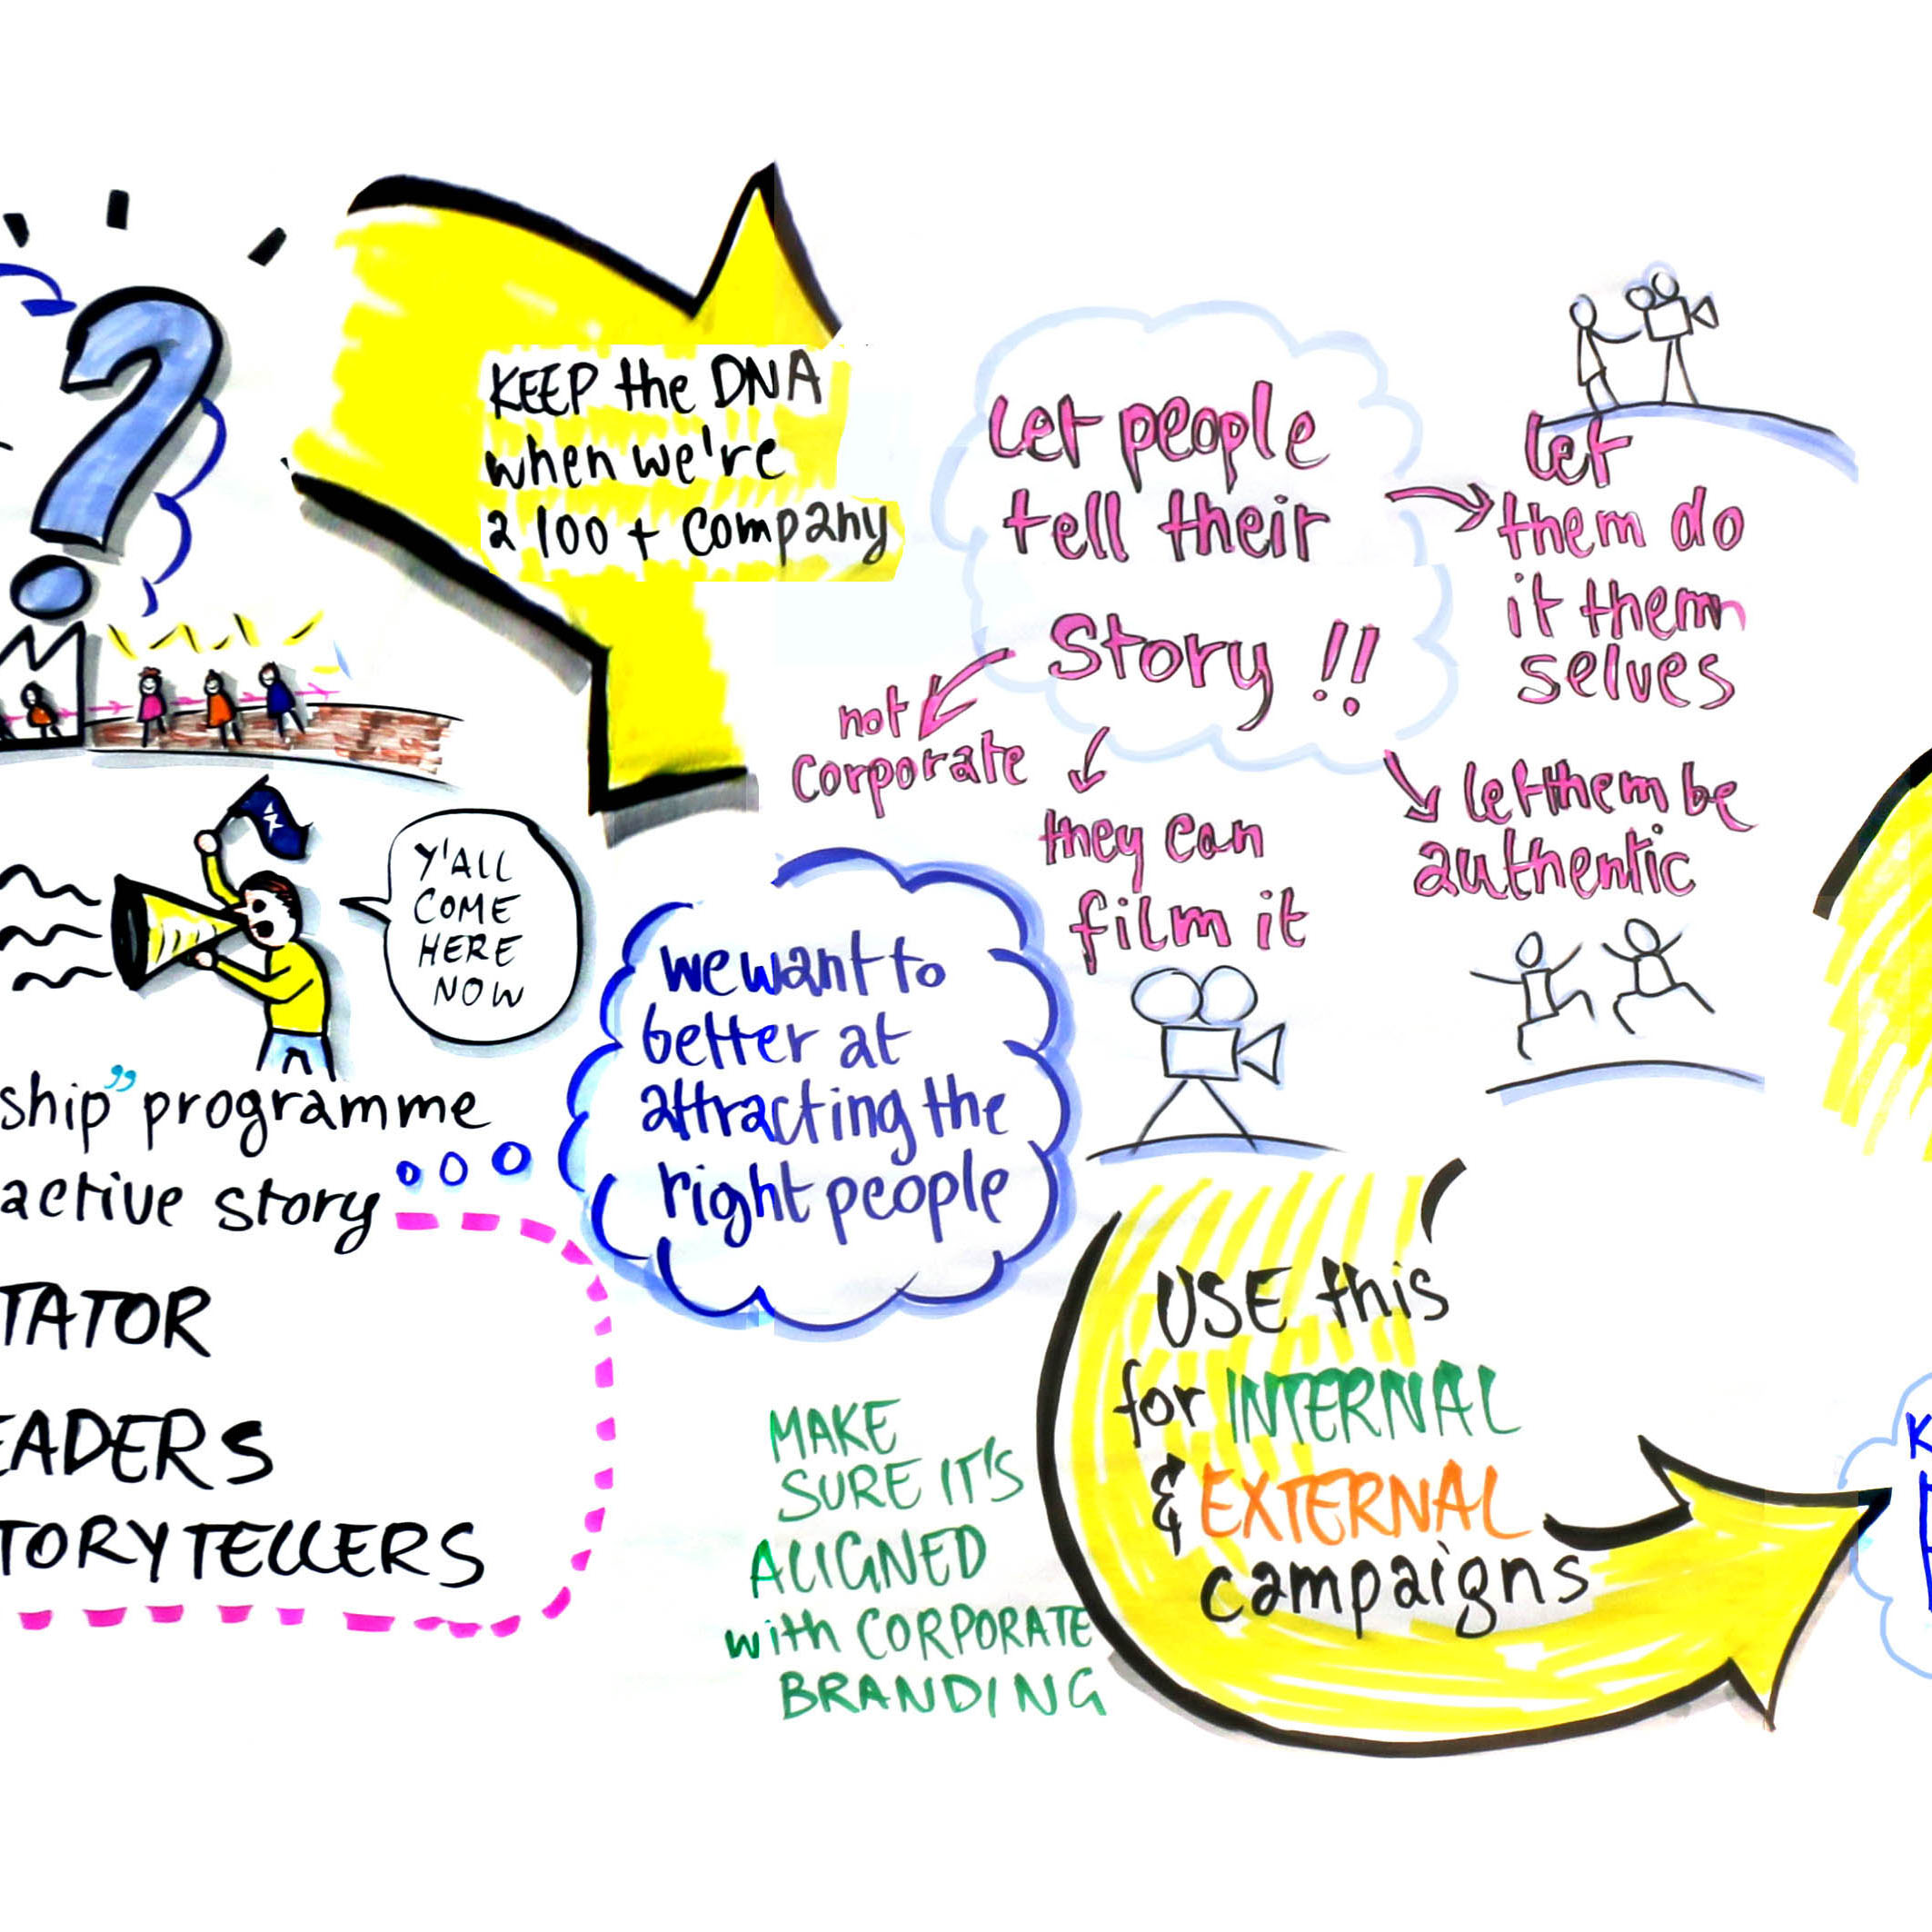 KEEP the DNA
when we're
a 100 + company
Let people
tell their
Story !!
let
them do
it them
selves
not
corporate
they can
film it
let them be
authentic
Y'ALL
COME
HERE
NOW
ship" programme
active story
TATOR
EADERS
TORYTELLERS
we want to
better at
attracting the
right people
MAKE
SURE IT'S
ALIGNED
with CORPORATE
BRANDING
USE this
for INTERNAL
& EXTERNAL
campaigns